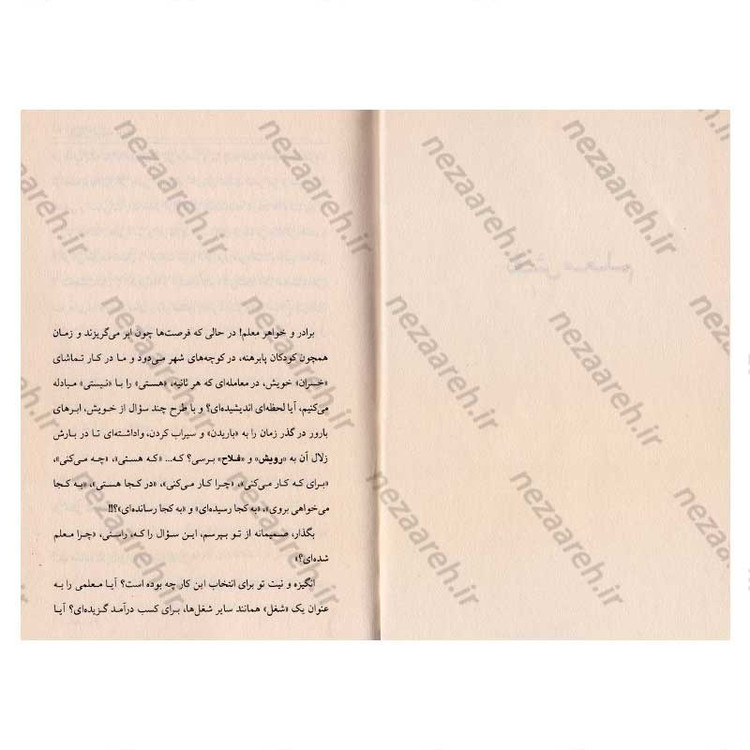 برادر و خواهر معلم! در حالی که فرصت‌ها چون ابر می‌گریزند و زمان
همچون کودکان پابرهنه، در کوچه‌های شهر می‌دود و ما در کار تماشای
«خسران» خویش، در معامله‌ای که هر ثانیه، «هستی» را با «نیستی» مبادله
می‌کنیم، آیا لحظه‌ای اندیشیده‌ای؟ و با طرح چند سؤال از خویش، ابرهای
بارور در گذر زمان را به «باریدن» و سیراب کردن، واداشته‌ای تا در بارش
زلال آن به «رویش» و «فلاح» برسی؟ که... «که هستی»، «چه می‌کنی»،
«برای که کار می‌کنی»، «چرا کار می‌کنی»، «در کجا هستی»، «به کجا
می‌خواهی بروی»، «به کجا رسیده‌ای» و «به کجا رسانده‌ای»؟!!
بگذار، صمیمانه از تو بپرسم، این سؤال را که، راستی، «چرا معلم
شده‌ای؟»
انگیزه و نیت تو برای انتخاب این کار چه بوده است؟ آیا معلمی را به
عنوان یک «شغل» همانند سایر شغل‌ها، برای کسب درآمد گزیده‌ای؟ آیا
nezaareh.ir